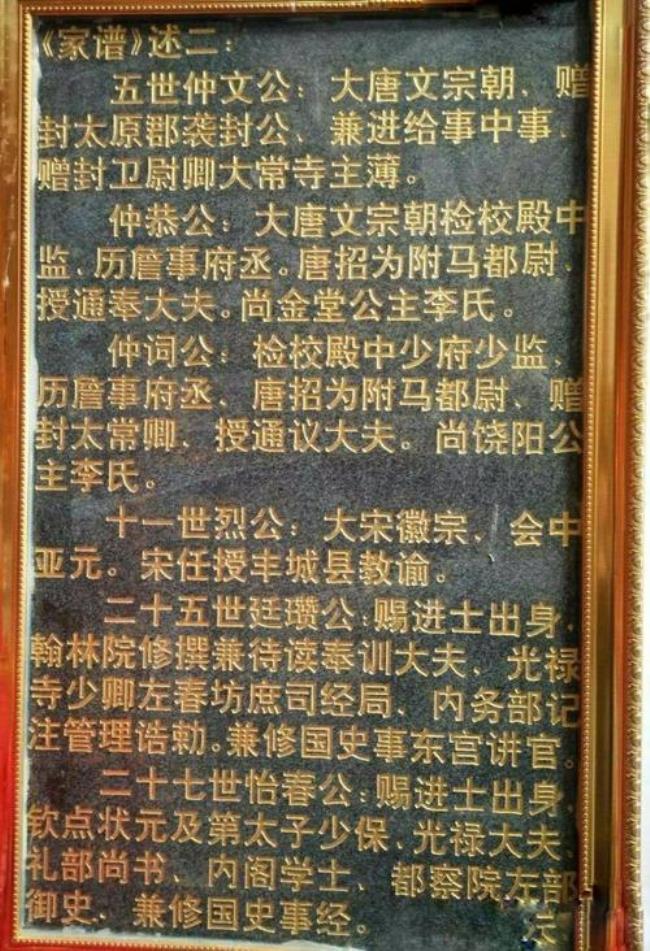 《家谱》述二：
五世仲文公：大唐文宗朝、赠
封太原郡袭封公、兼进给事中事、
赠封卫尉卿大常寺主薄。
仲恭公：大唐文宗朝检校殿中
监、历詹事府丞。唐招为附马都尉、
授通奉大夫。尚金堂公主李氏。
仲词公：检校殿中少府少监、
历詹事府丞、唐招为附马都尉、赠
封太常卿、授通议大夫。尚饶阳公
主李氏。
十一世烈公：大宋徽宗、会中
亚元。宋任授丰城县教谕。
二十五世廷瓒公：赐进士出身、
翰林院修撰兼待读奉训大夫、光禄
寺少卿左春坊庶司经局、内务部记
注管理诰勅。兼修国史事东宫讲官。
二十七世怡春公：赐进士出身，
钦点状元及第太子少保、光禄大夫、
礼部尚书、内阁学士、都察院左部
御史、兼修国史事经。